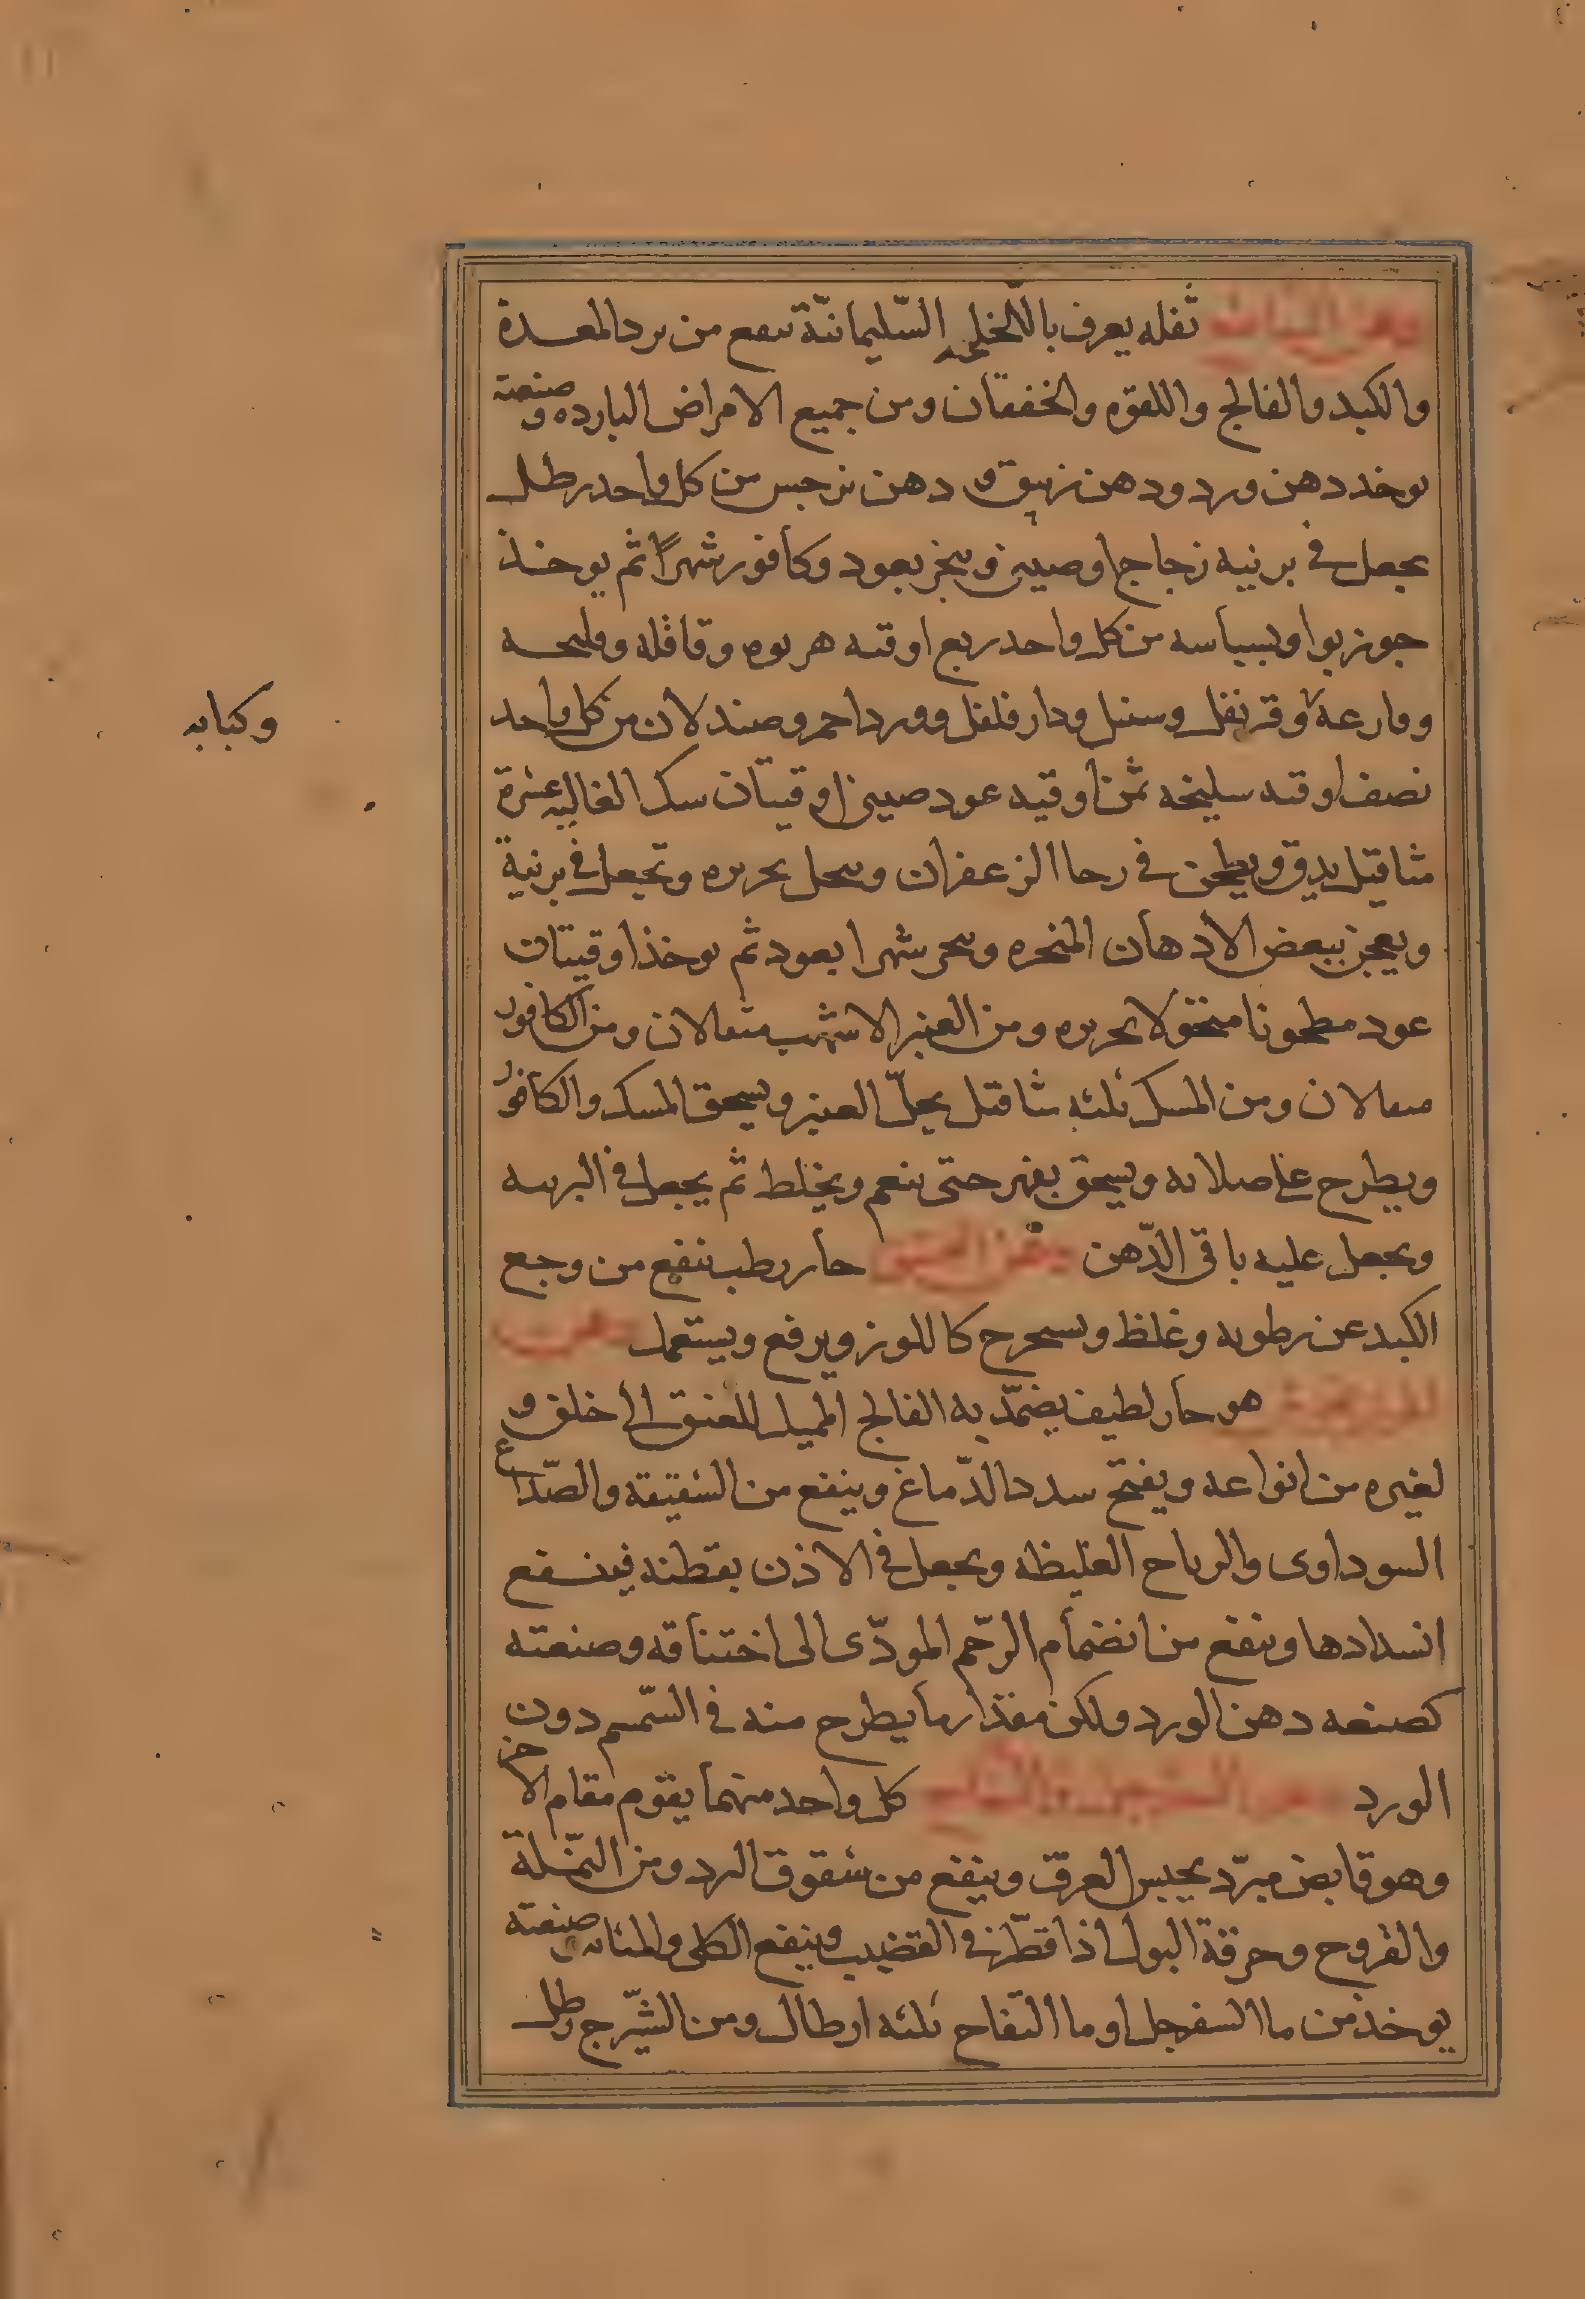 ثفله يعرف باللخلخه السّليمانيّة تنفع من برد المعدة
والكبد والفالج واللقوه والخفقان ومن جميع الامراض البارده وصنعته
يوخذ دهن ورد ودهن زنبق و دهن نرجس من كل واحد رطل
يجعل في برنيه زجاج او صينى ويبخر بعود وكافور شهرًا ثم يوخذ
جوز بوا وبسباسه من كل واحد ربع اوقيه هربوه وقاقله وفلنجه
وقرنفل وسنبل ودار فلفل وورد احمر وصندلان من كل واحد
وكبابه
نصف اوقيه سليخه ثمن اوقيه عود صينى اوقيتان سك الغاليه عشرة
مثاقيل يدق ويطحن في رحا الزعفران وينخل بحريره وتجعل في برنية
ويعجن ببعض الادهان المبخره ويبخر شهرا بعود ثم يوخذ اوقيتان
عود مطحونا منخولا بحريره ومن العنبر الاشهب مثقالان ومن الكافور
مثقالان ومن المسك ثلثه مثاقيل يحلّ العنبر ويسحق المسك والكافور
ويطرح على صلايه ويسحق بفهر حتى ينعم ويخلط ثم يجعل في البرنيه
ويجعل عليه باقى الدّهن دهن الفستق حار رطب ينفع من وجع
الكبد عن رطوبه وغلظ ويستخرج كاللوز ويرفع ويستعمل دهن
هو حار لطيف يضمّد به الفالج المميل للعنق الى خلف و
لغيره من انواعه ويفتح سدد الدّماغ وينفع من الشقيقه والصّداع
السوداوى والرياح الغليظه ويجعل في الاذن بقطنه فينفع
انسدادها وينفع من انضمام الرّحم المودّى الى اختناقه وصنعته
كصنعه دهن الورد ولكن مقدار ما يطرح منه في السّمسم دون
الورد دهن السفرجل والتفاح كل واحد منهما يقوم مقام الاخر
وهو قابض مبرّد يحبس العرق وينفع من شقوق البرد ومن النّملة
والقروح وحرقة البول اذا قطّر في القضيب وينفع الكلى والمثانه وصنعته
يوخذ من ما السفرجل او ما التّفاح ثلثه ارطال ومن الشّيرج رطل